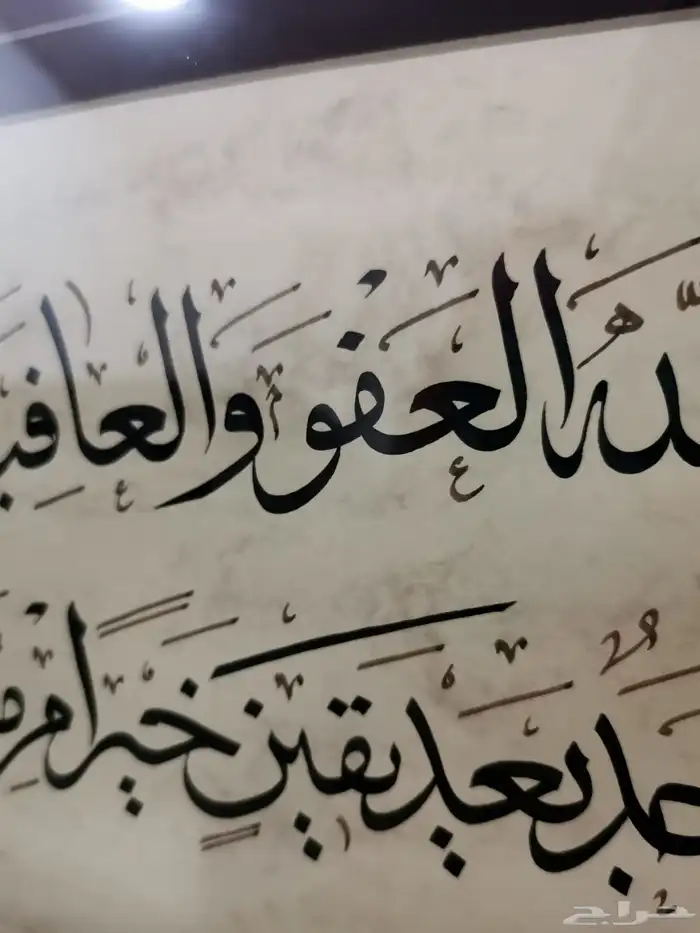 ـلَّهَ العَفْوَ وَالعَافِيـ
بَعْدَ يَقِينٍ خَيْرًا مِـ
حراج